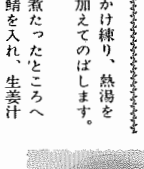 かけ練り、熱湯を
加えてのばします。
煮たったところへ
鯖を入れ、生姜汁